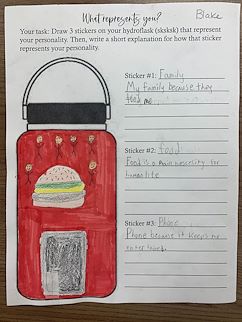 What represents you?
Blake
Your task: Draw 3 stickers on your hydroflask (sksksk) that represent
your personality. Then, write a short explanation for how that sticker
represents your personality.
Sticker #1: Family
My family because they
feed me.
Sticker #2: food
Food is a main necessity for
human life
Sticker #3: Phone
Phone because it keeps me
entertained.